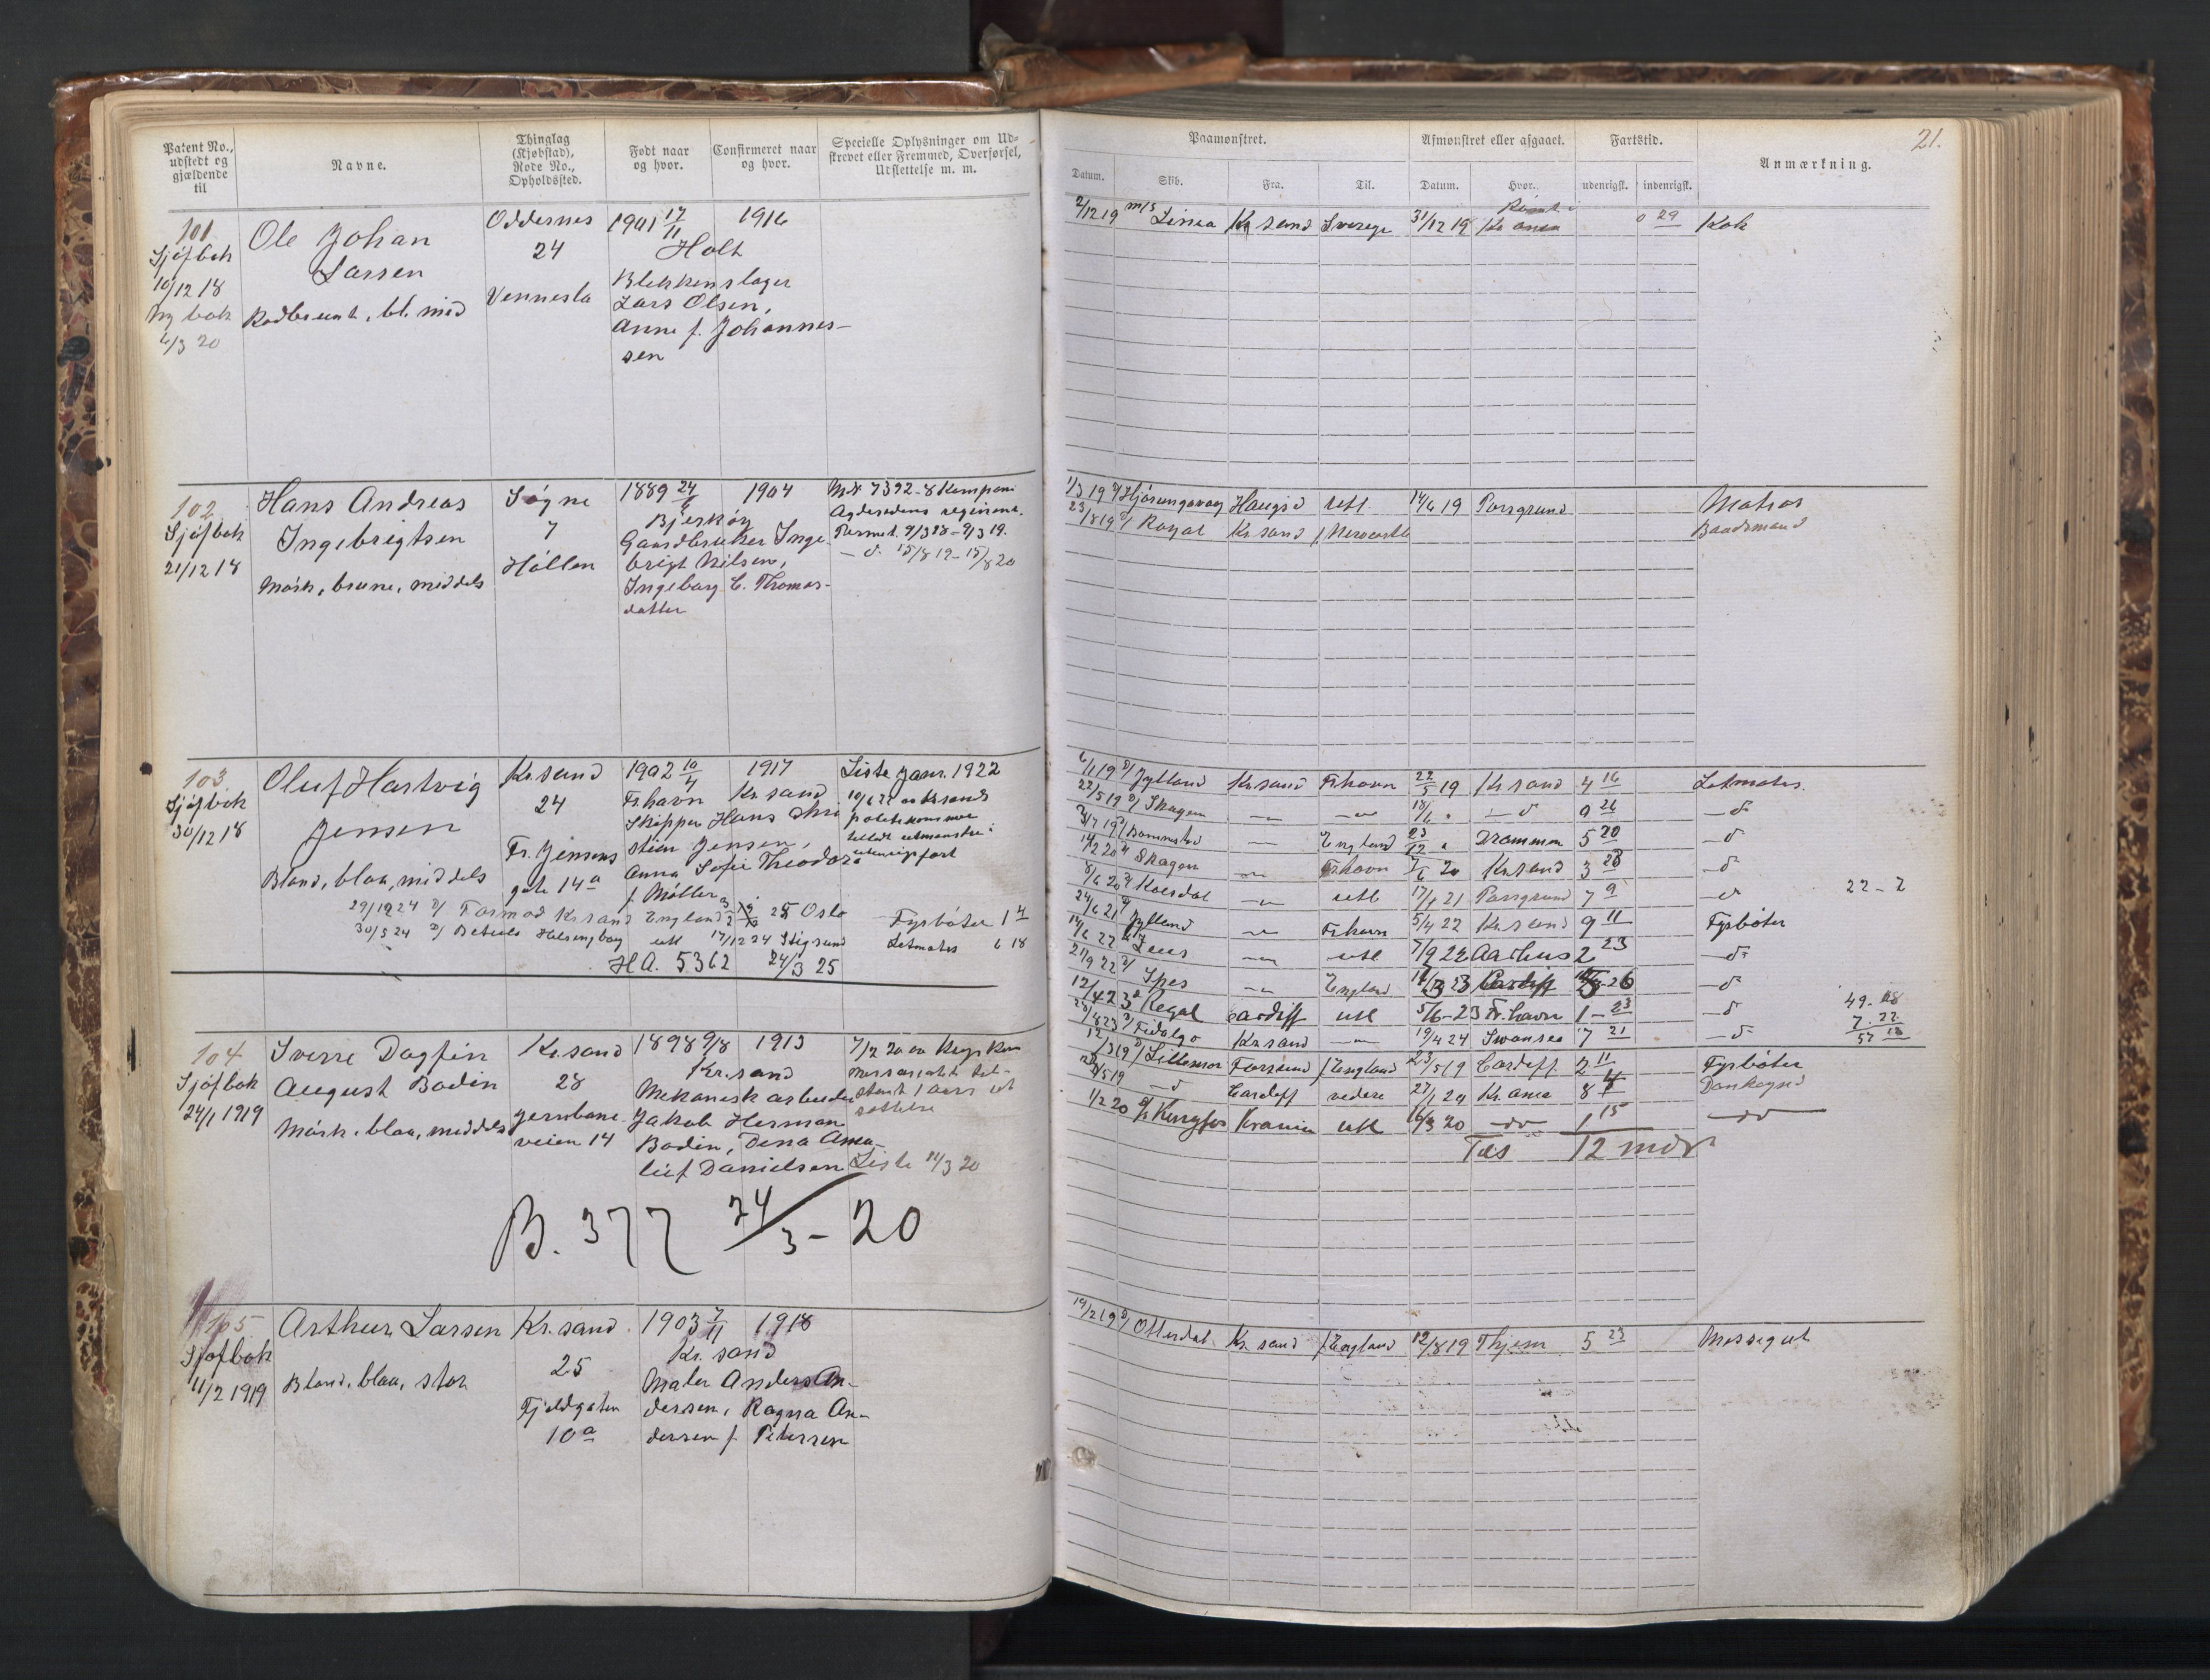 Patent No., udstedt og gjældende til
Navne.
Thinglag (Kjøbstad), Rode No., Opholdssted.
Født naar og hvor.
Confirmeret naar og hvor.
Specielle Oplysninger om Udskrevet eller Fremmed, Overførsel, Udslettelse m. m.
101
Sjøfbok
10/12 18
Ny bok
6/3 20
Ole Johan
Larsen
Rødbrunt, bl. mid
Oddernes
24
Vennesla
1901 17/11 1916
Holt
Blikkenslager
Lars Olsen,
Anne f. Johannes-
sen
102
Sjøfbok
21/12 18
Hans Andreas
Ingebrigtsen
Mørk, brune, middels
Søgne
7
Høllen
1889 24/6 1904
Bjerkøy
Gaardbruker Inge-
brigt Nilsen,
Ingeborg C. Thomas-
datter
M.N 7392-8 Kompani
Permet. 9/3 18 - 9/3 19.
— d. 15/8 19 - 15/8 20
103
Sjøfbok
30/12 18
Oluf Hartvig
Jensen
Blond, blaa, middels
Kr.sand
24
Fr. Jensens
gate 14a
1902 10/4 1917
Fr.havn Kr.sand
Skipper Hans Chri
stian Jensen,
Anna Sofie Theodora
f. Møller
Liste Janr. 1922
Kr.sand England 25 Oslo Fyrbøter 1 4
30/5 24 utl 17/12 24 Stigsund Letmatr 6 18
H.A. 5362 24/3 25
104
Sjøfbok
24/1 1919
Sverre Dagfin
August Bodin
Mørk, blaa, middels
Kr.sand
28
Jernbane-
veien 14
1898 9/8 1913
Kr.sand
Mekanisk arbeider
Jakob Herman
Bodin, Dina Ama-
lie f. Danielsen
Liste 11/3 20
B. 377 24/3 - 20
105
Sjøfbok
11/2 1919
Arthur Larsen
Blond, blaa, stor
Kr.sand
25
Fjeldgaten
10a
1903 7/11 1918
Kr. sand
Maler Anders An-
dersen, Ragna An-
dersen f. Petersen
21.
Paamønstret.
Afmønstret eller afgaaet.
Fartstid.
Anmærkning.
Datum. Skib. Fra. Til. Datum. Hvor. udenrigsk. indenrigsk.
2/12 19 m/s Linea Kr sand Sverige 31/12 19 0 29 Kok
1/3 19 Hjørungavaag Haugsd utl 14/6 19 Porsgrund Matros
23/8 19 Royal Kr sand / Newcastle Baadsmand
6/1 19 Jylland Kr.sand Fr.havn 22/5 19 Kr sand 4 16 Letmatros.
22/5 19 Skagen — — 18/6 — d 0 26 — d
England 23/12 Drammen 5 20 — d
14/2 20 Skagen — Fr.havn 7/6 20 Kr.sand 3 23 — d
8/6 20 — utl 17/1 21 Porsgrund 7 9 — d
22 - 2
24/6 21 Jylland — Fr.havn 5/4 22 Kr.sand 9 11 Fyrbøter
14/6 22 Zeus — utl 7/9 22 Aarhus 2 23 — d
21/9 22 Ipes — England Cardiff 26 — d
12/4 23 Regal Cardiff utl 5/6-23 Fr.havn 1 - 23 — d
49. 18
23/8 23 Fidelgo Kr.sand — 19/4 24 Swansea 7 21 — d
7. 22
57 10
12/3 19 Lillemor Farsund / England 23/5 19 Cardiff 2 11 Fyrbøter
23/5 19 — d Cardiff videre 27/1 20 Kr.ania 8 4 Donkeymd
1/2 20 Kongsfos Krania utl 16/3 20 — do 1 15 — do
Tils 12 mdr
19/2 19 Otterdal Kr. sand / England 12/8 19 Thjem 5 23 Messegut